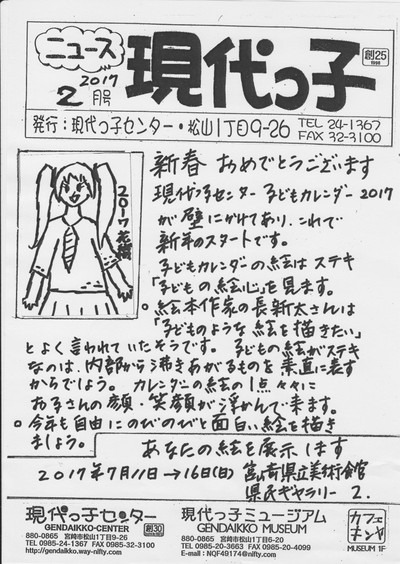 ニュース
現代っ子
創25
2017
2月号
発行:現代っ子センター・松山1丁目9-26
TEL 24-1367
FAX 32-3100
新春 おめでとうございます
現代っ子センター 子どもカレンダー 2017
が壁にかけてあり、これで
新年のスタートです。
子どもカレンダーの絵はステキ
「子どもの絵心」を見ます。
・絵本作家の長新太さんは
「子どものような絵を描きたい」
とよく言われていたそうです。子どもの絵がステキ
なのは、内部から沸きあがるものを素直に表す
からでしょう。カレンダーの絵の1点々々に
お子さんの顔・笑顔が浮かんで来ます。
○今年も自由にのびのびと面白い絵を描き
ましょう。
あなたの絵を展示します
2017年7月11日→16日(日) 宮崎県立美術館
県民ギャラリー2.
2017 花
現代っ子センター
GENDAIKKO-CENTER
創30
880-0865 宮崎市松山1丁目9-26
TEL 0985-24-1367 FAX 0985-32-3100
http://gendaikko.way-nifty.com/
現代っ子ミュージアム
GENDAIKKO MUSEUM
880-0865 宮崎市松山1丁目6-20
TEL 0985-20-3663 FAX 0985-20-4099
E-mail : NQF49174@nifty.com
カフェ
MUSEUM 1F